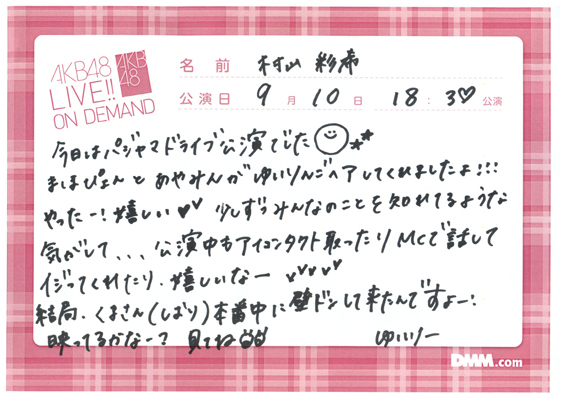 AKB48
LIVE!!
ON DEMAND
AKB
48
名前 村山 彩希
公演日 9月10日 18:30公演
今日はパジャマドライブ公演でした
まほぴょんとあやみんがゆいりんごヘアしてくれましたよ!!!
やったー!嬉しい♥♥ 少しずつみんなのことを知れてるような
気がして、、、公演中もアイコンタクト取ったりMCで話して
イジってくれたり、嬉しいなー
結局、くまさん(しおり)本番中に壁ドンして来たんですよー!
映ってるかなー?見てね
ゆいりー
DMM.com